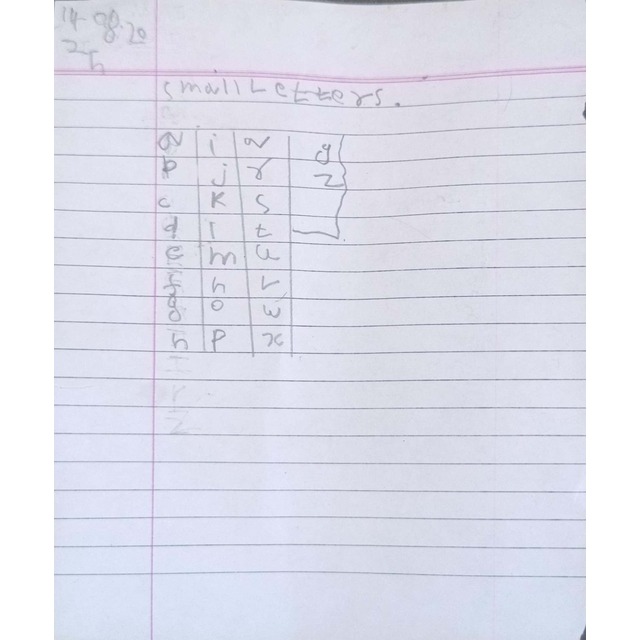 14 08.20
small Letters.
a i q y
b j r z
c k s
d l t
e m u
f n v
g o w
h p x